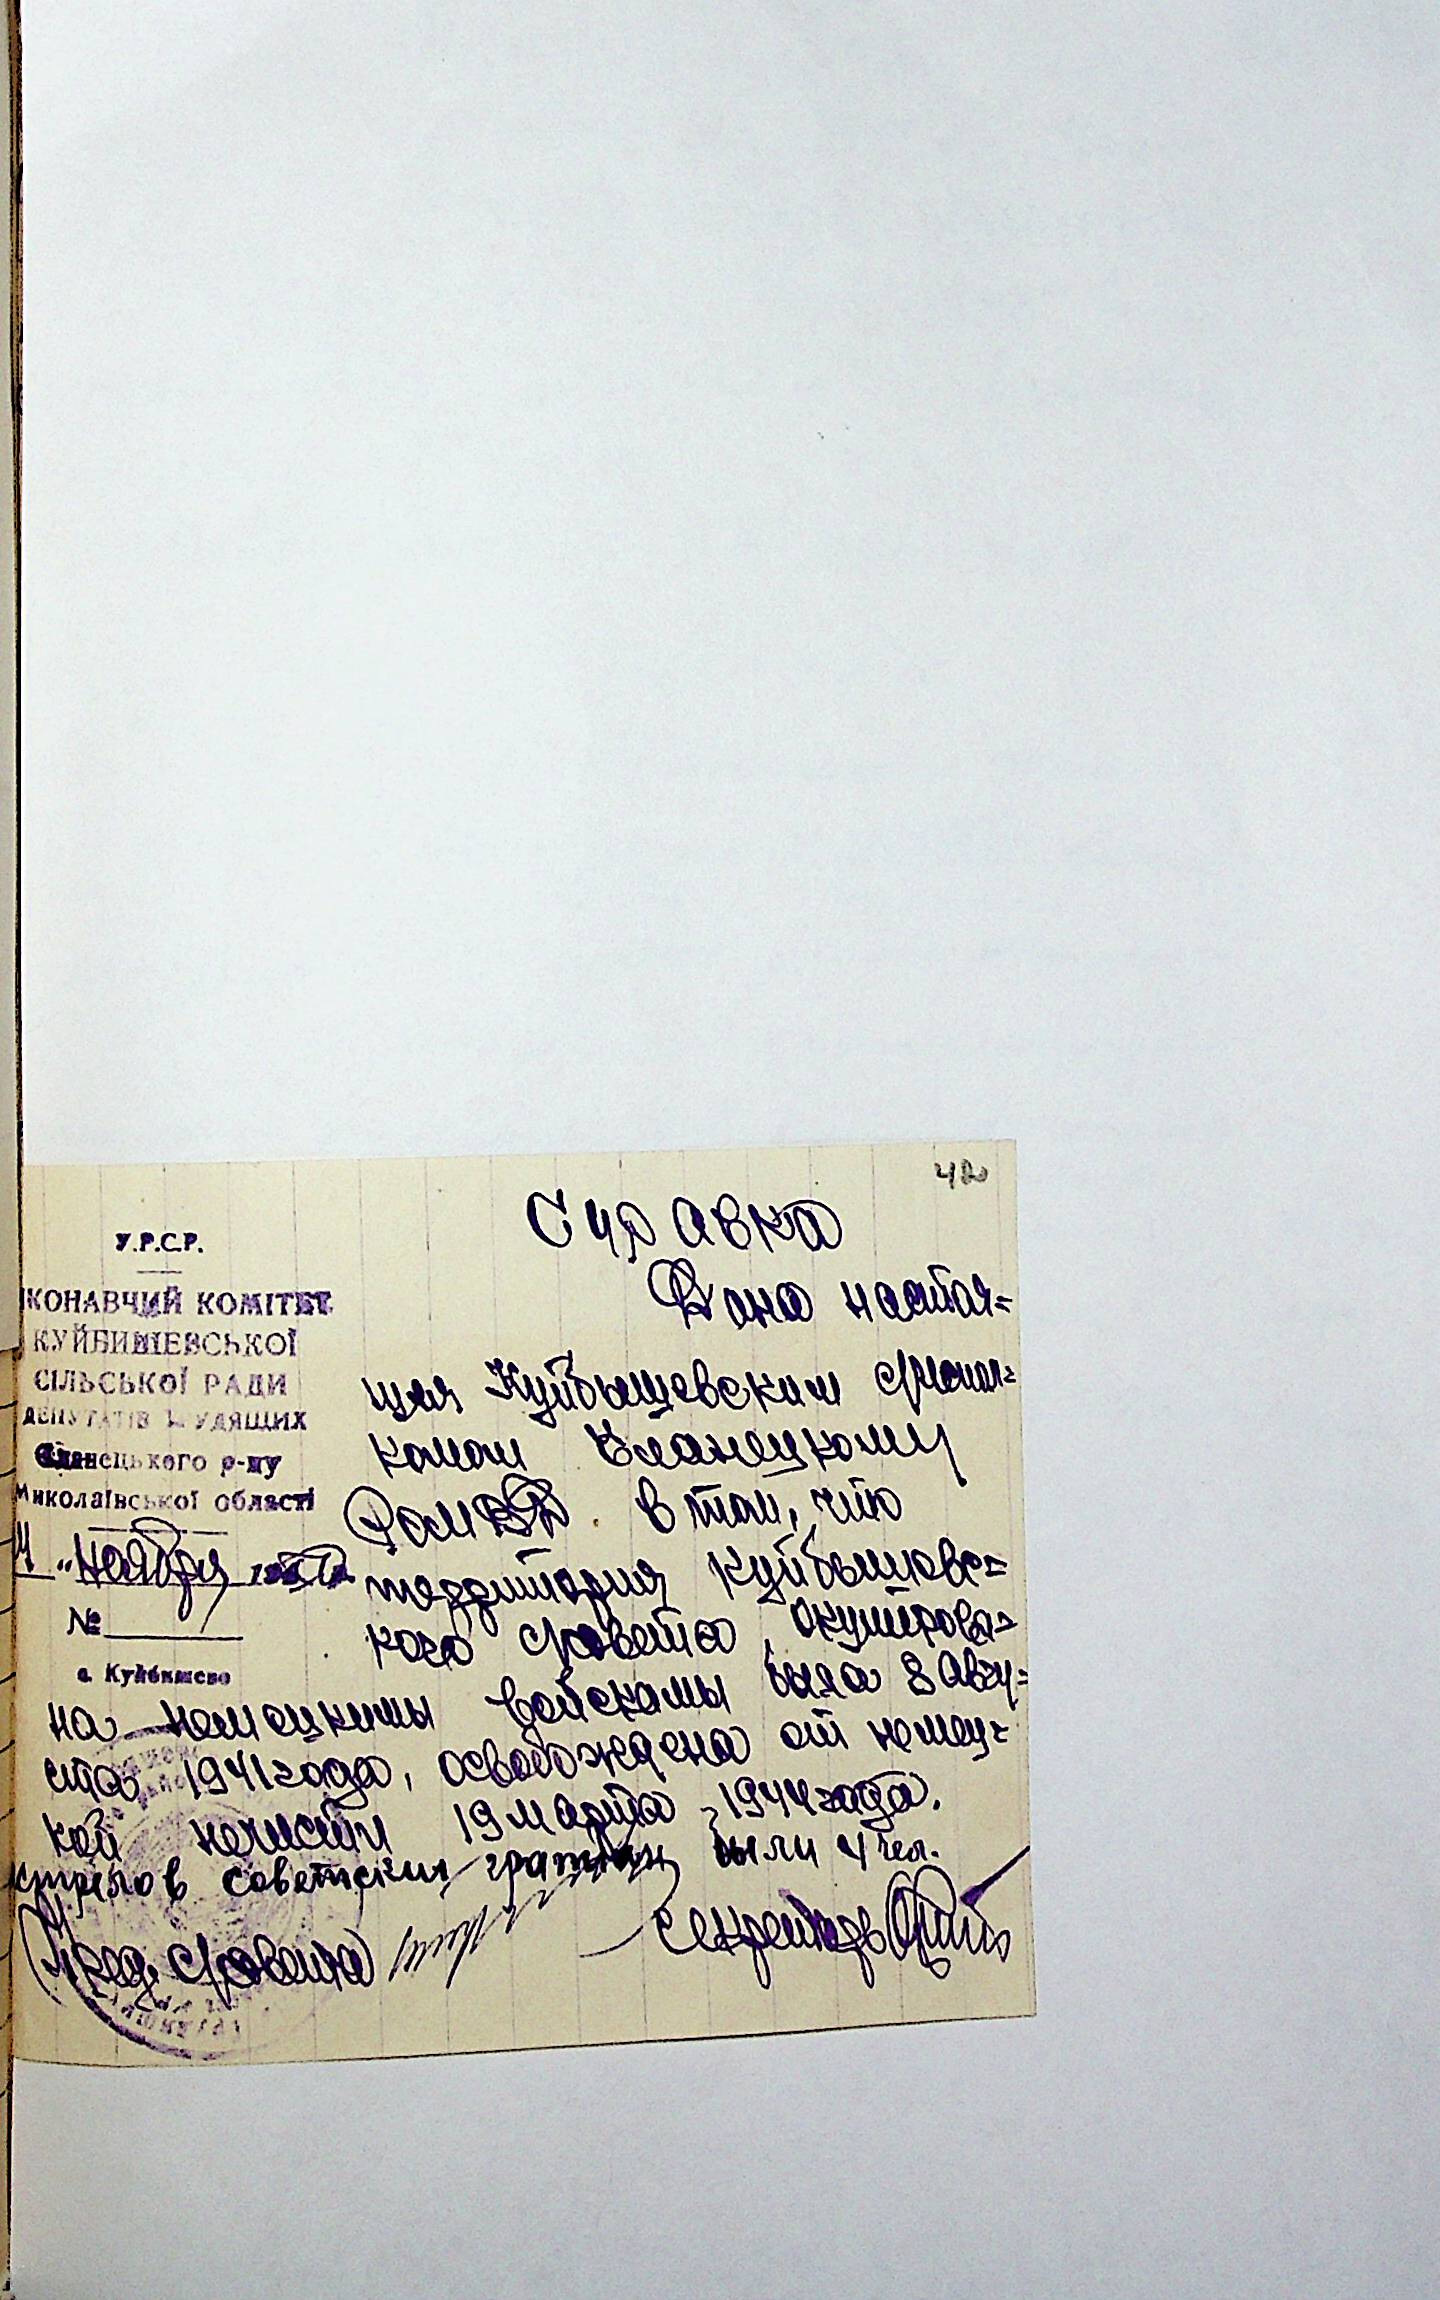 42
У.Р.С.Р.
КОНАВЧИЙ КОМІТЕТ
КУЙБИШЕВСЬКОЇ
СІЛЬСЬКОЇ РАДИ
ДЕПУТАТІВ ТРУДЯЩИХ
Єланецького р-ну
Миколаївської області
" ноября
№
с. Куйбишево
Справка
Дана настоя=
щая Куйбышевским с/испол=
комом Еланецкому
РОМВД в том, что
территория Куйбышевс=
кого с/совета, окупирова=
на немецкимы войскамы была 8 Авгу=
ста 1941 года, освобождена от немец=
кой нечисти 19 марта 1944 года.
советских граждан были 4 чел.
Пред. с/совета
Секретарь